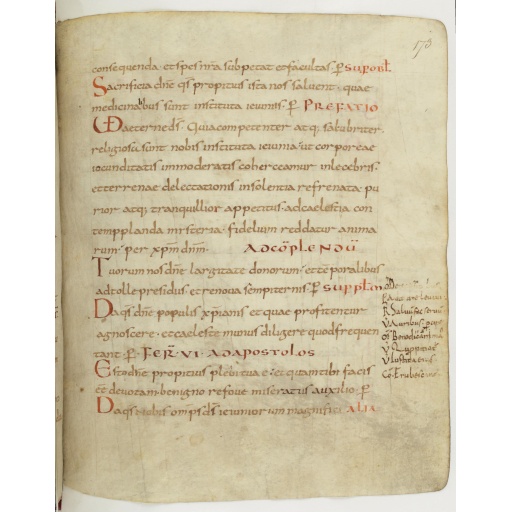 173
consequenda · et spes nr̄a subpetat et facultas · ꝑ SUP OBL̄
Sacrificia dn̄e qs̄ propitius ista nos saluent · quae
medicinalibus sunt instituta ieiuniis · ꝑ PREFATIO
VD aeterne ds̄ · Quia competenter atq; salubriter
religiosi sunt nobis instituta ieiunia · ut corporeae
iocunditatis immoderatis coherceamur inlecebris ·
et terrenae delectationis insolentia refrenata · pu
rior atq; tranquillior appetitus · ad caelestia con
templanda misteria · fidelium reddatur anima
rum · per xp̄m dn̄m · AD CŌPLENDŪ
Tuorum nos dn̄e largitate donorum · et temporalibus
adtolle presidiis · et renoua sempiternis · ꝑ SUPPL̄M
Da qs̄ dn̄e populis xp̄ianis et quae profitentur
agnoscere · et caeleste munus diligere quod frequen
tant · ꝑ · FER̄ · VI · AD APOSTOLOS
Esto dn̄e propitius plebi tuae · et quam tibi facis
ēē deuotam · benigno refoue miseratus auxilio · ꝑ
Da qs̄ nobis om̄ps ds̄ ieiuniorum magnifici ALIA